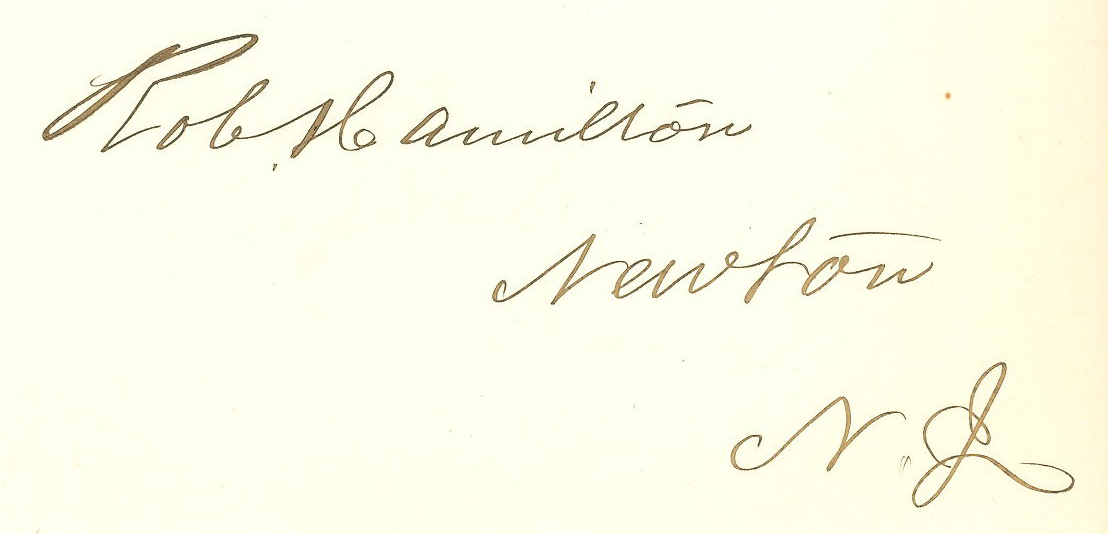 Rob. Hamilton
Newton
N. J.